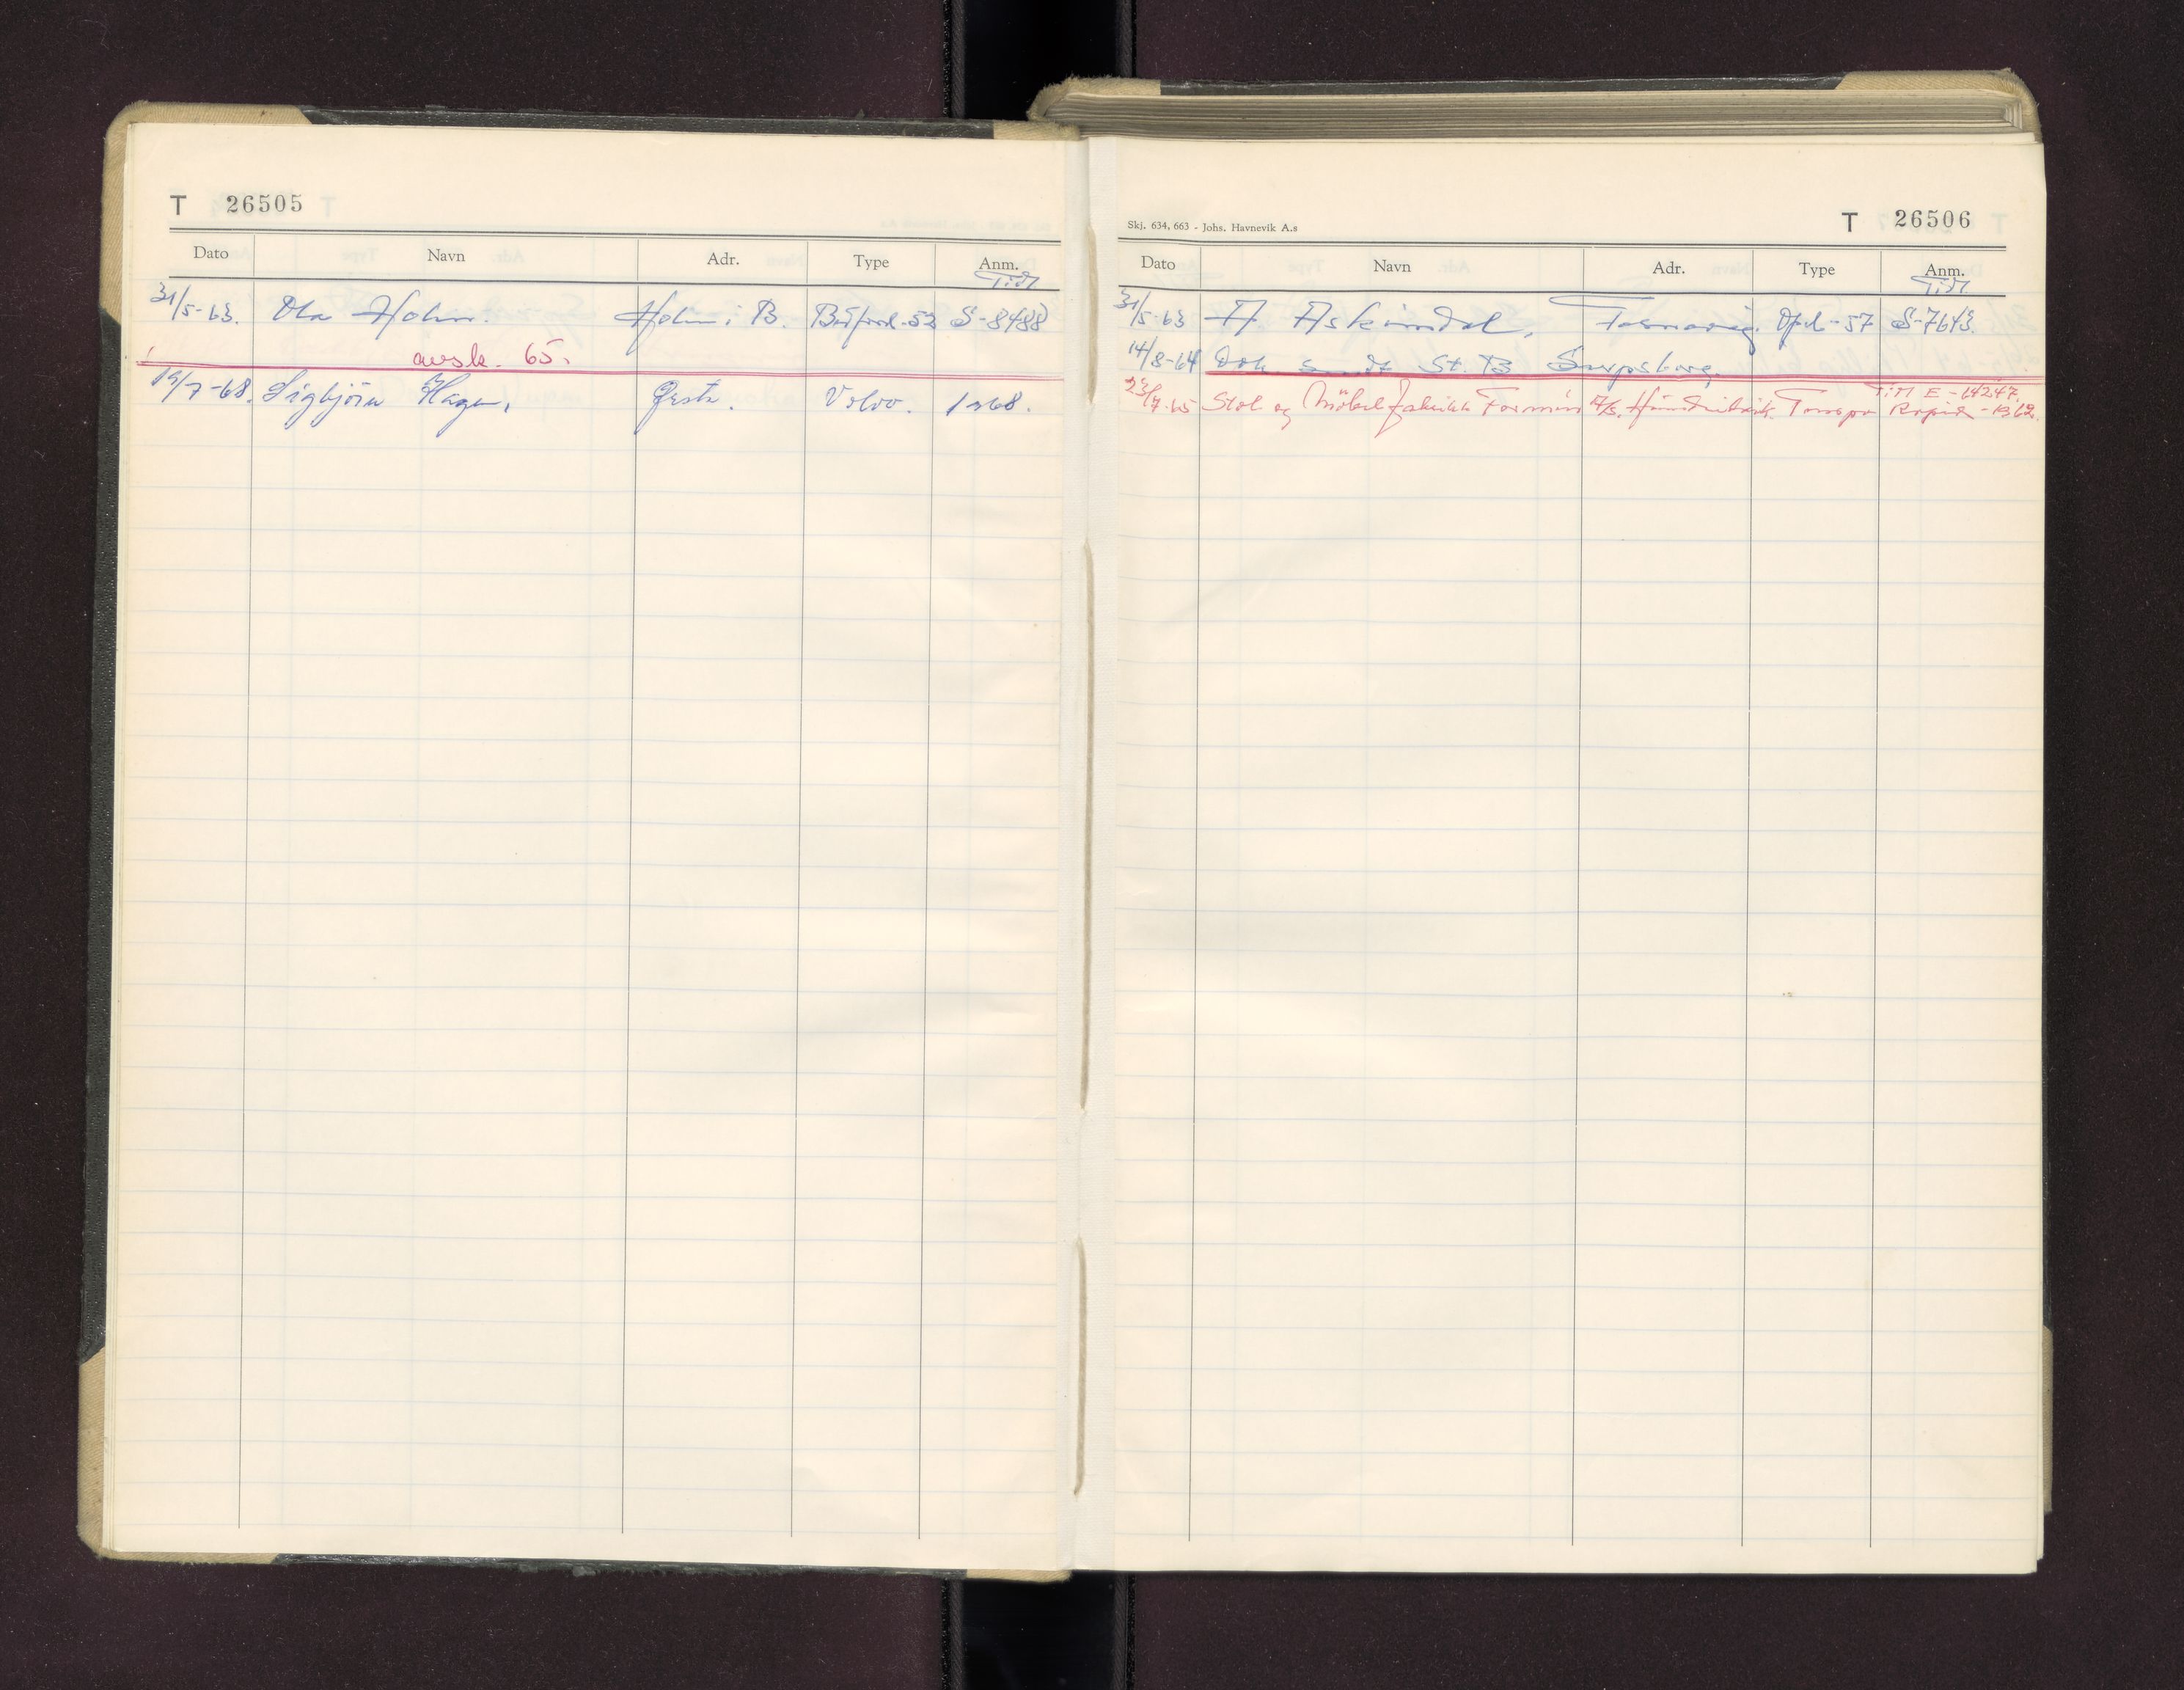 T 26505
Dato Navn Adr. Type Anm.
Tidl.
31/5-63. Ola Holm. Holm i B. Bedford-53 S-8488
avsk. 65.
19/7-68. Sigbjörn Hagen, Ørsta. Volvo. 1968.
Skj. 634, 663 - Johs. Havnevik A.s
T 26506
Dato Navn Adr. Type Anm.
Tidl.
31/5-63 A Askeindal, Fosnavåg. Opel-57 S-7643.
14/8-64 Dok. sendt St. B Sarpsborg.
Tidl E-14247.
23/7-65 Stol og Møbelfabrikk Formin A/s. Tempo Rapid-1962.